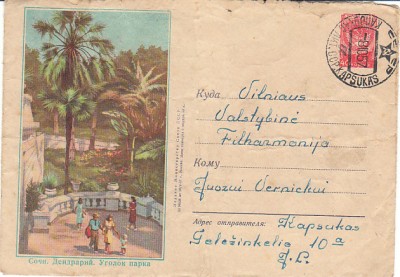 СССР
KAPSUKAS
Куда Vilniaus
Valstybinė
Filharmonija
Кому
Juozui Vernickui
Адрес отправителя: Kapsukas
Geležinkelio 10a
J. L.
Сочи. Дендрарий. Уголок парка